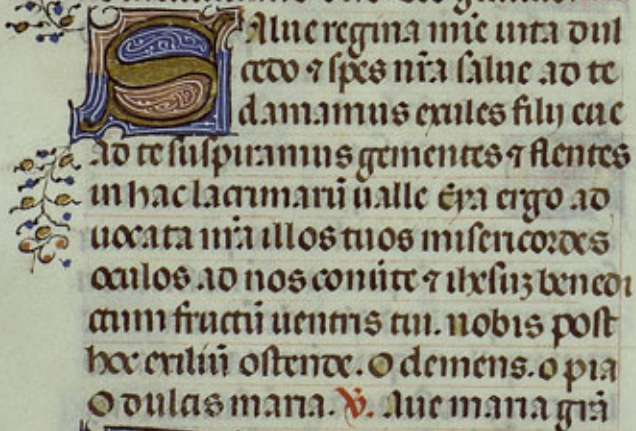 Salue regina mie uita dul
cedo ⁊ spes nr̄a salue ad te
clamamus exules filij eue
ad te suspiramus gementes ⁊ flentes
in hac lacrimarū ualle Eya ergo ad
uocata nr̄a illos tuos misericordes
oculos ad nos conūte ⁊ ihesuȝ benedi
ctum fructū uentris tui. nobis post
hoc exiliū ostende. O clemens. o pia
O dulcis maria. V. Aue maria grā